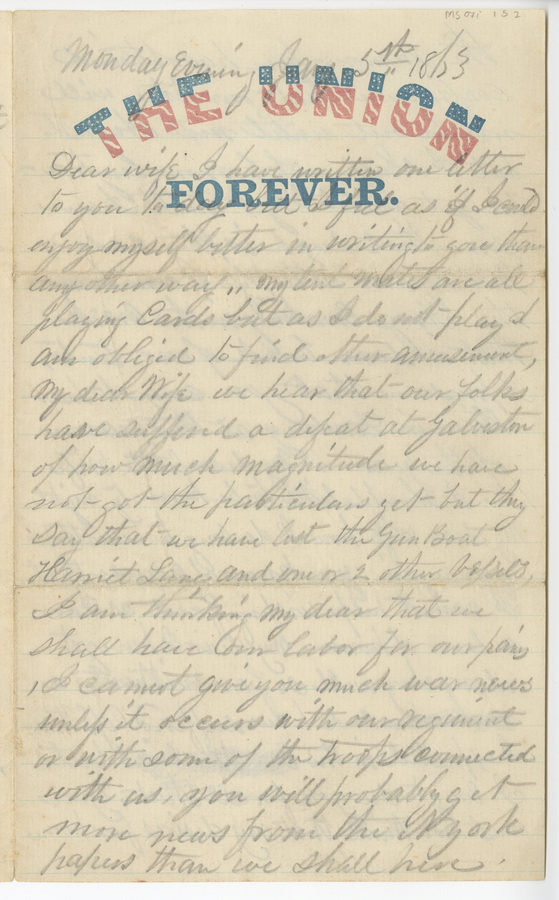 MS 021 152
Monday Evening Jany 5st 1863
THE UNION
FOREVER.
Dear wife I have written one letter
to you to day but I feel as if I could
enjoy myself better in writing to you than
any other way,, my tent mates are all
playing Cards but as I do not play I
am obliged to find other amusement,
My dear Wife we hear that our folks
have suffered a defeat at Galveston
of how much magnitude we have
not got the particulars yet but they
say that we have lost the Gun Boat
Harriet Lane and one or 2 other Vessels,
I am thinking my dear that we
shall have our labor for our pain
, I cannot give you much war news
unless it occurs with our regiment
or with some of the troops connected
with us, you will probably get
more news from the N York
papers than we shall here.